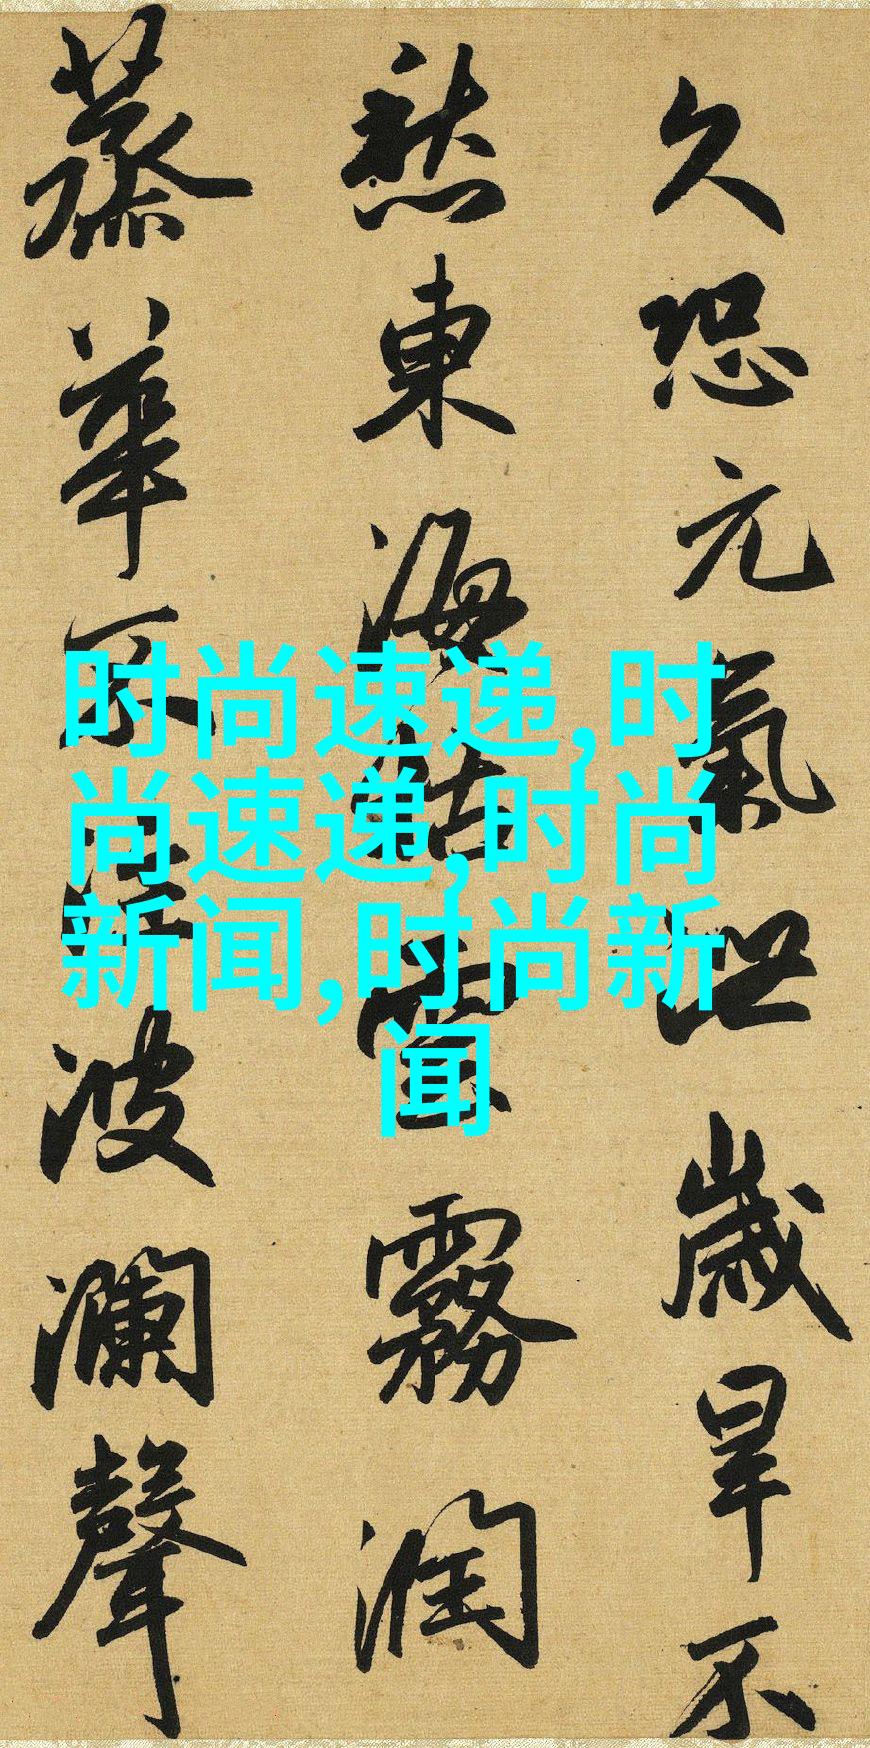 久恐元氣泄歲旱不
愁東海枯雲霧潤
蒸華不注波瀾聲
时尚速递,时
尚速递,时尚
新闻,时尚新
闻